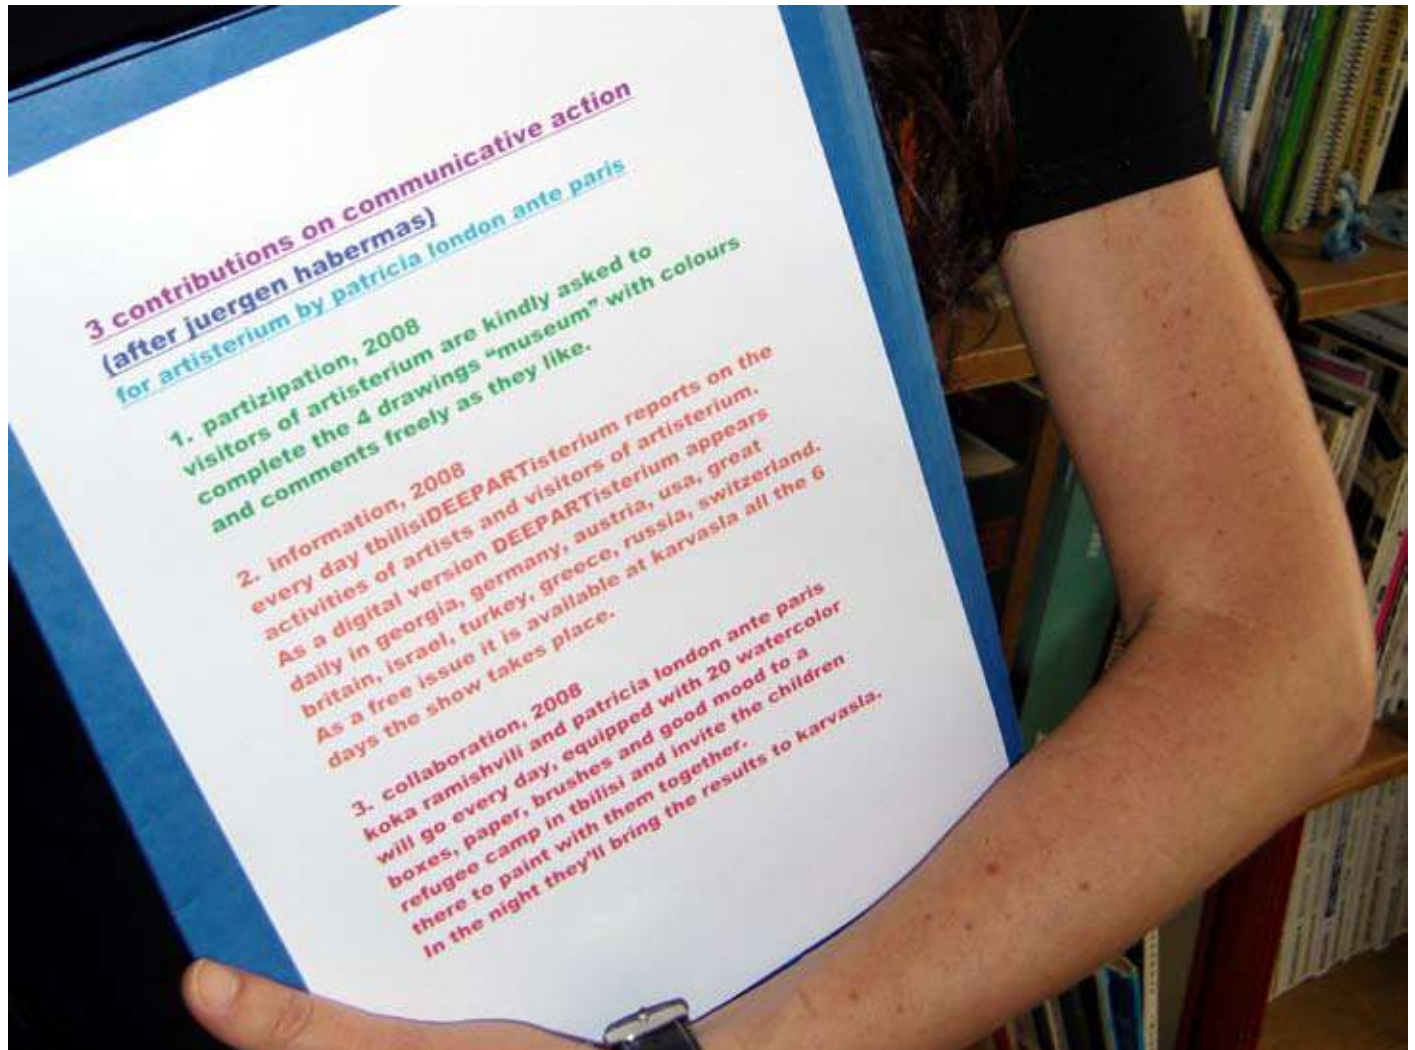 3 contributions on communicative action
(after juergen habermas)
for artisterium by patricia london ante paris
1. partizipation, 2008
visitors of artisterium are kindly asked to
complete the 4 drawings “museum” with colours
and comments freely as they like.
2. information, 2008
every day tbilisiDEEPARTisterium reports on the
activities of artists and visitors of artisterium.
As a digital version DEEPARTisterium appears
daily in georgia, germany, austria, usa, great
britain, israel, turkey, greece, russia, switzerland.
As a free issue it is available at karvasla all the 6
days the show takes place.
3. collaboration, 2008
koka ramishvili and patricia london ante paris
will go every day, equipped with 20 watercolor
boxes, paper, brushes and good mood to a
refugee camp in tbilisi and invite the children
there to paint with them together.
In the night they’ll bring the results to karvasla.